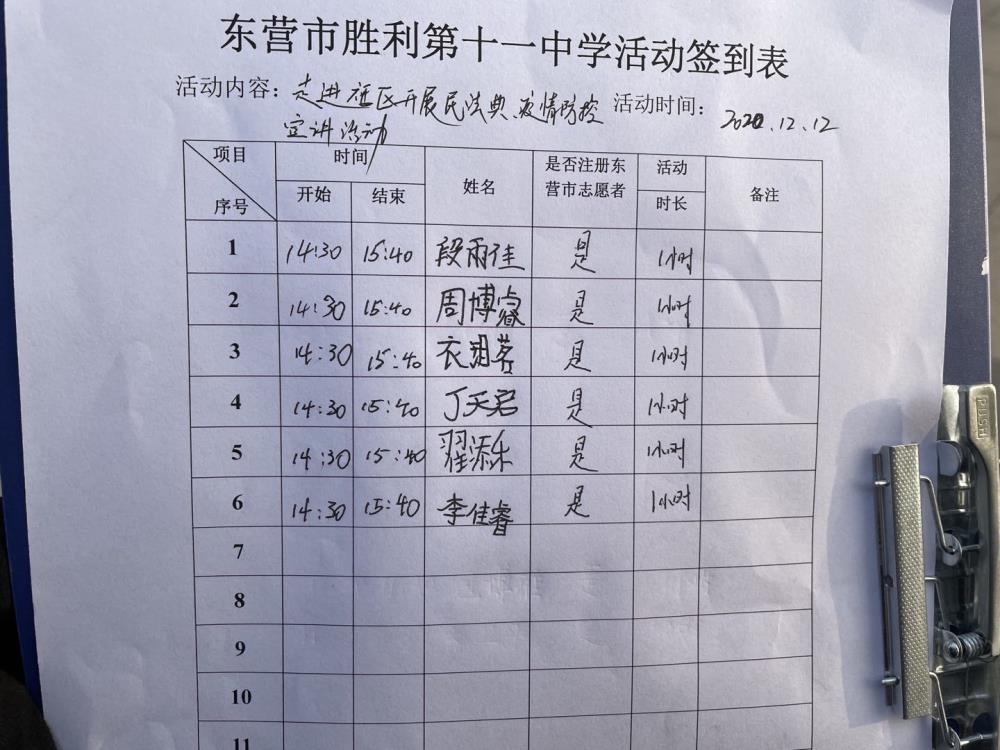 东营市胜利第十一中学活动签到表
活动内容：走进社区开展民法典、疫情防控 活动时间：2020.12.12
宣讲活动
项目 时间 姓名 是否注册东营市志愿者 活动时长 备注
序号 开始 结束
1 14:30 15:40 段雨佳 是 1小时
2 14:30 15:40 周博睿 是 1小时
3 14:30 15:40 衣 是 1小时
4 14:30 15:40 丁天君 是 1小时
5 14:30 15:40 翟添乐 是 1小时
6 14:30 15:40 李佳睿 是 1小时
7
8
9
10
11
PUSH